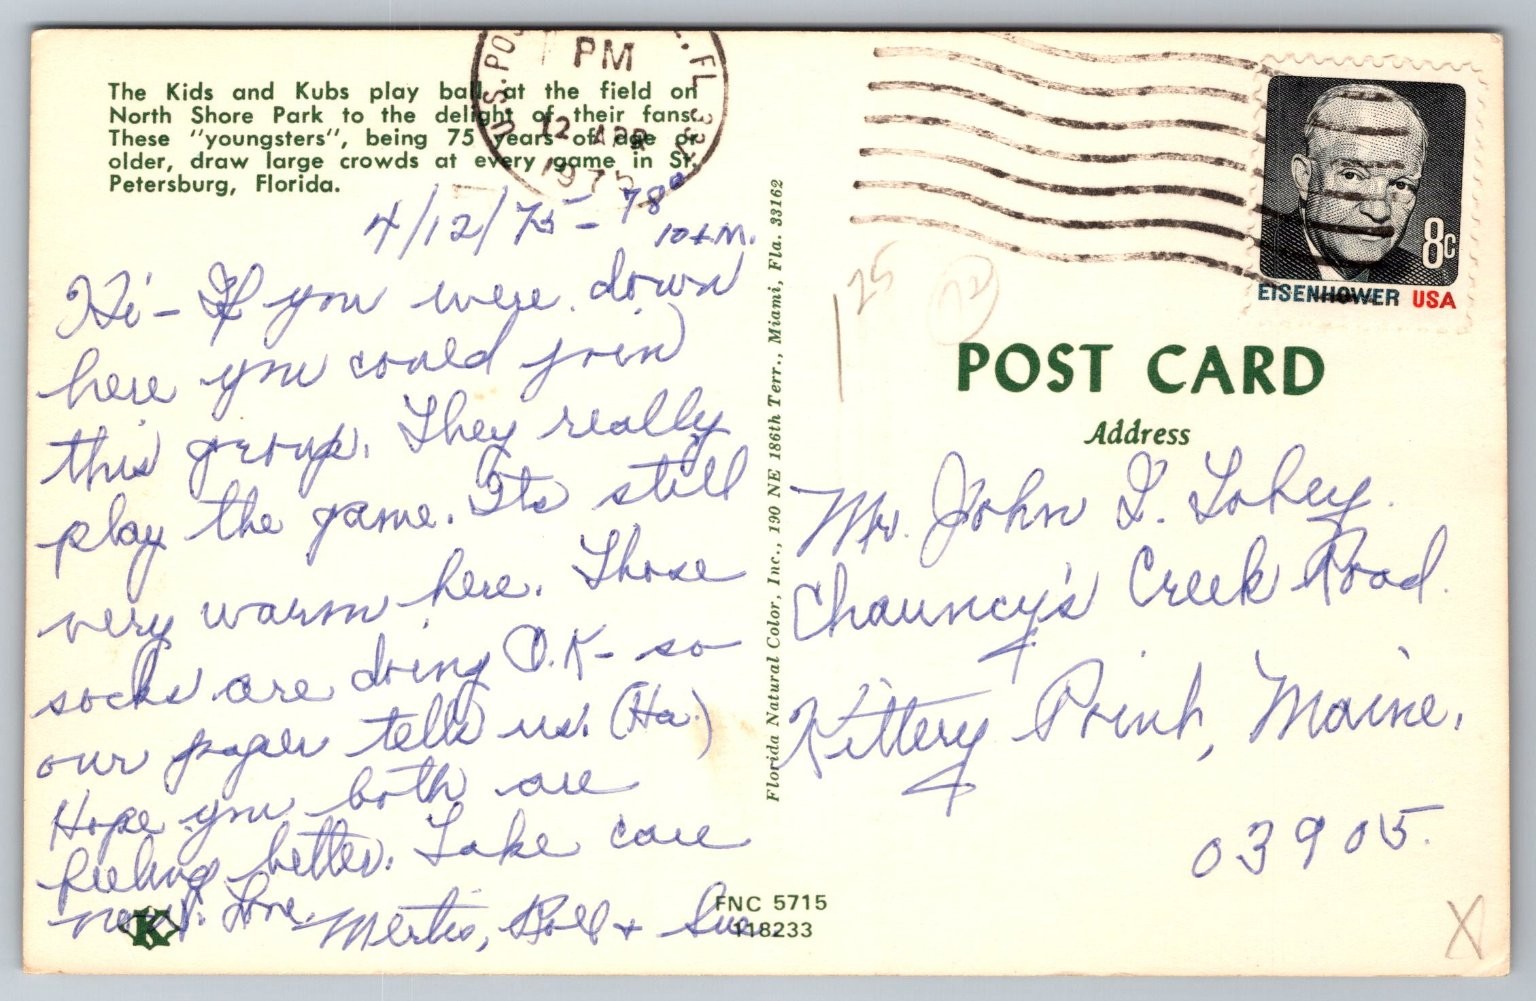 The Kids and Kubs play ball at the field on
North Shore Park to the delight of their fans.
These "youngsters", being 75 years of age or
older, draw large crowds at every game in St.
Petersburg, Florida.
U.S. POS
PM
FL
12 APR
1975
4/12/75 - 78°
10 A.M.
Hi - If you were down
here you could join
this group. They really
play the game. Its still
very warm here. Those
socks are doing O.K - so
our paper tells us. (Ha.)
Hope you both are
feeling better. Take care
now. Love. Mertis, &
Sue.
K
FNC 5715
118233
Florida Natural Color, Inc., 190 NE 186th Terr., Miami, Fla. 33162
125
72
8c
EISENHOWER USA
POST CARD
Address
Mr. John Lohey.
Chauncy's Creek Road.
Kittery Point, Maine.
03905.
X